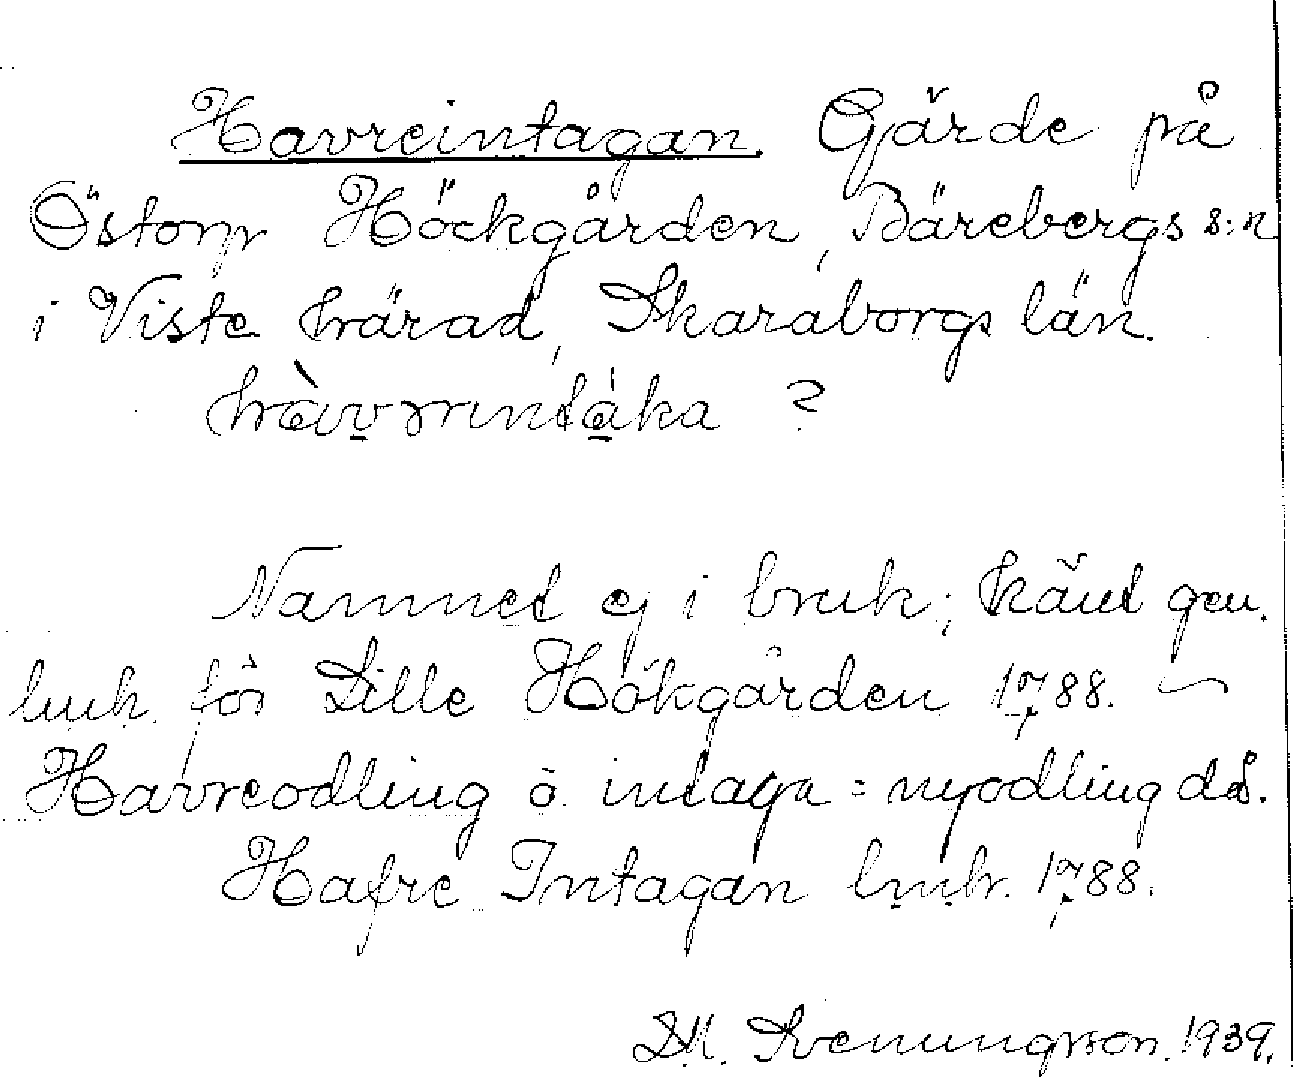 Havreintagan. Gärde på
Östorp Höckgården, Bärebergs s:n
i Viste härad, Skaraborgs län.
hàvrintáka ?
Namnet ej i bruk; känt gen.
lmh. för Lille Hökgården 1788. –
Havreodling o. intaga = nyodling ds.
Hafre Intagan lmh. 1788.
D.M. Svenungsson. 1939.